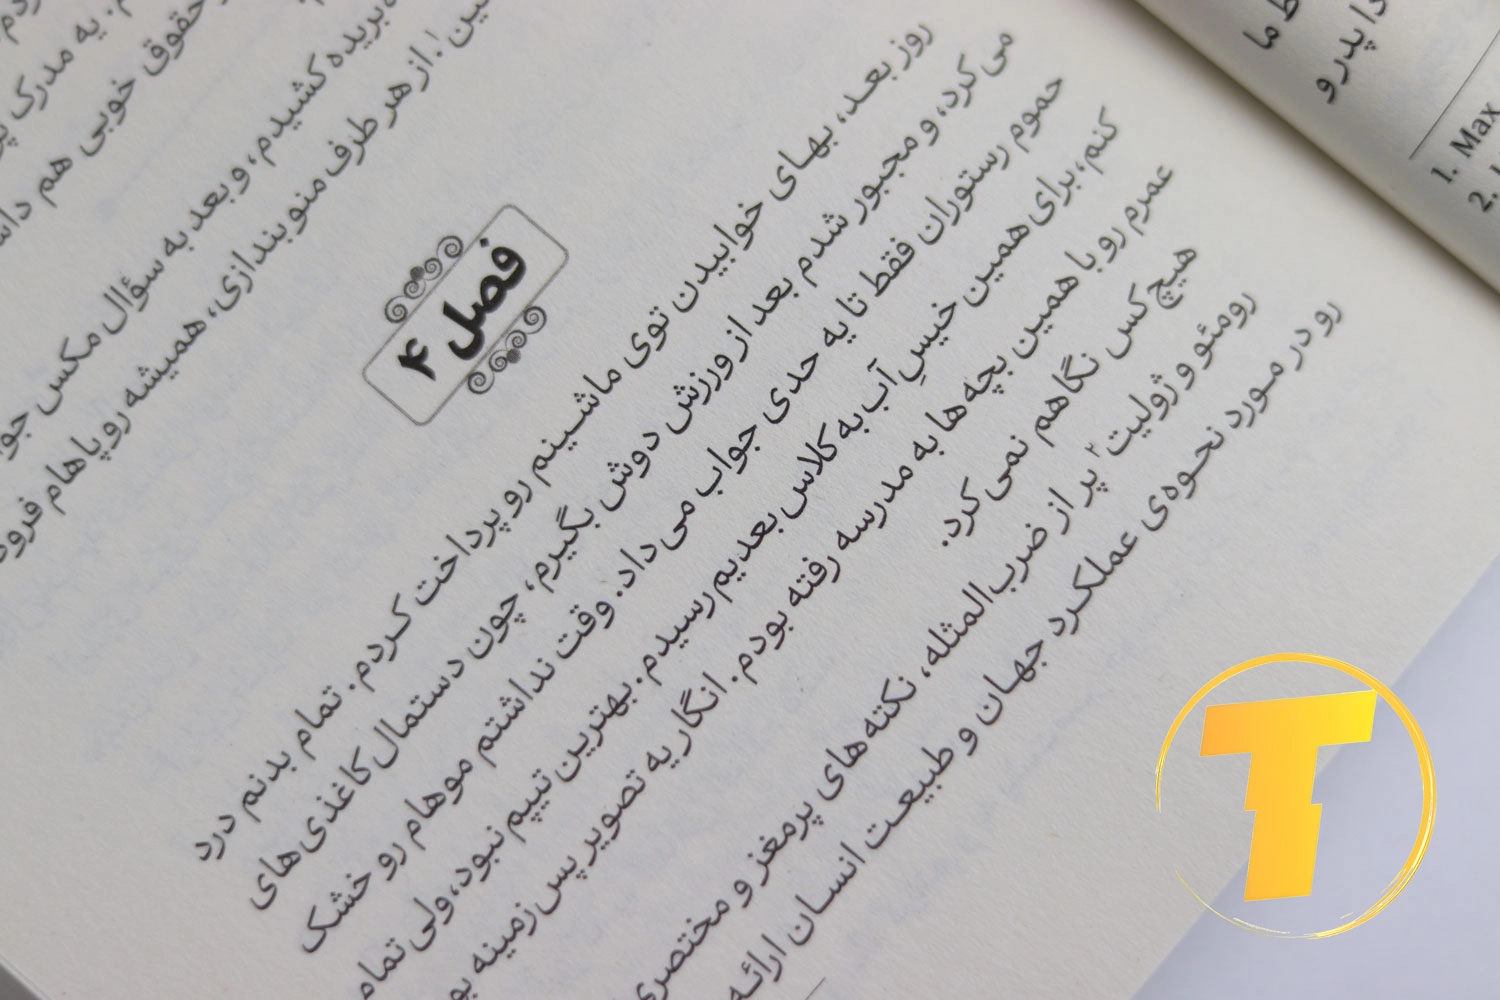 یه مدرک
حقوق خوبی هم
بریده کشیدم، و بعد به سؤال مکس
از هر طرف منو بندازی، همیشه رو پاهام
فصل ۴
روز بعد، بهای خوابیدن توی ماشینم رو پرداخت کردم. تمام بدنم درد
می‌کرد، و مجبور شدم بعد از ورزش دوش بگیرم، چون دستمال کاغذی های
حموم رستوران فقط تا یه حدی جواب می داد. وقت نداشتم موهام رو خشک
کنم، برای همین خیسِ آب به کلاس بعدیم رسیدم. بهترین تیپم نبود، ولی تمام
عمرم رو با همین بچه ها به مدرسه رفته بودم. انگار یه تصویر پس زمینه
هیچ کس نگاهم نمی کرد.
رومئو و ژولیت۲ پر از ضرب‌المثله، نکته های پرمغز و مختصری
رو در مورد نحوه‌ی عملکرد جهان و طبیعت انسان ارائه
ما
پدر و
1. Max
2.
T